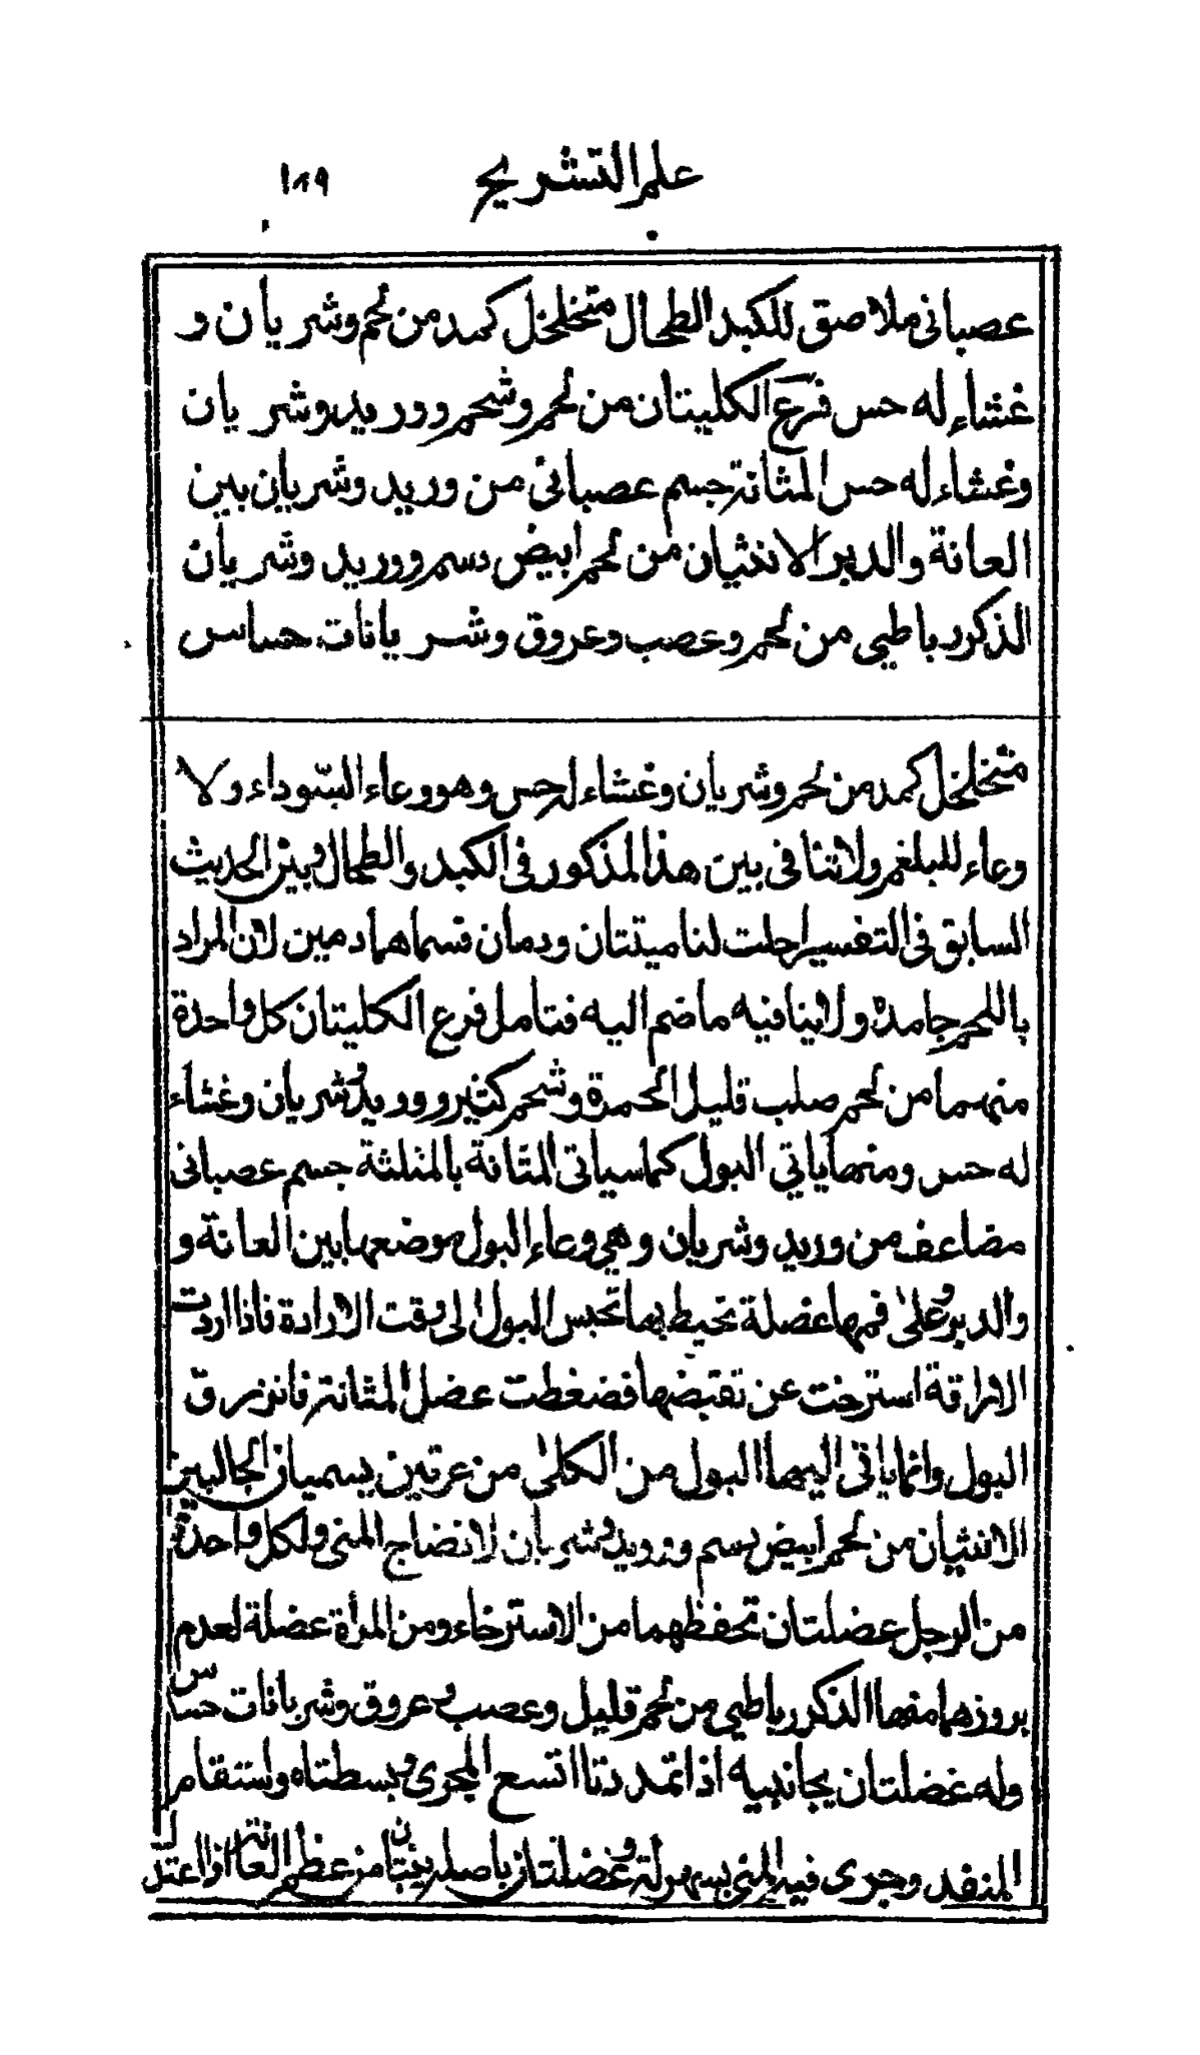 علم التشريح ١٨٩
عصبانى ملاصق للكبد الطحال متخلخل كمد من لحم وشريان و
غشاء له حس فرع الكليتان من لحم وشحم ووريد وشريان
وغشاء له حس المثانة جسم عصبانى من وريد وشريان بين
العانة والدبر الانثيان من لحم ابيض دسم ووريد وشريان
الذكر رباطى من لحم وعصب وعروق وشريانات حساس
متخلخل كمد من لحم وشريان وغشاء له حس وهو وعاء السّوداء ولا
وعاء للبلغم ولا تنافى بين هذا المذكور فى الكبد والطحال وبين الحديث
السابق فى التفسير احلت لنا ميتتان ودمان فسماهما دمين لان المراد
باللحم جامده ولا ينافيه ما ضم اليه فتامل فرع الكليتان كل واحدة
منهما من لحم صلب قليل الحمرة وشحم كثير ووريد وشريان وغشاء
له حس ومنها ياتي البول كما سياتى المثانة بالمثلثة جسم عصبانى
مضاعف من وريد وشريان وهي وعاء البول موضعها بين العانة و
والدبر وعلى فمها عضلة تحيط بها تحبس البول الى وقت الارادة فاذا اردت
الاراقة استرخت عن تقبضها فضغطت عضل المثانة فانزرق
البول وانما ياتى اليها البول من الكلى من عرقين يسميان الحالبين
الانثيان من لحم ابيض دسم ووريد وشريان لانضاج المنى ولكل واحدة
من الرجل عضلتان تحفظهما من الاسترخاء ومن المرأة عضلة لعدم
بروزهما منها الذكر رباطي من لحم قليل وعصب وعروق وشريانات حساس
وله عضلتان بجانبيه اذا تمددتا اتسع المجرى وبسطتاه واستقام
المنفد وجرى فيه المنى بسهولة وعضلتان باصله ينبتان من عظم العانة اذا اعتدل